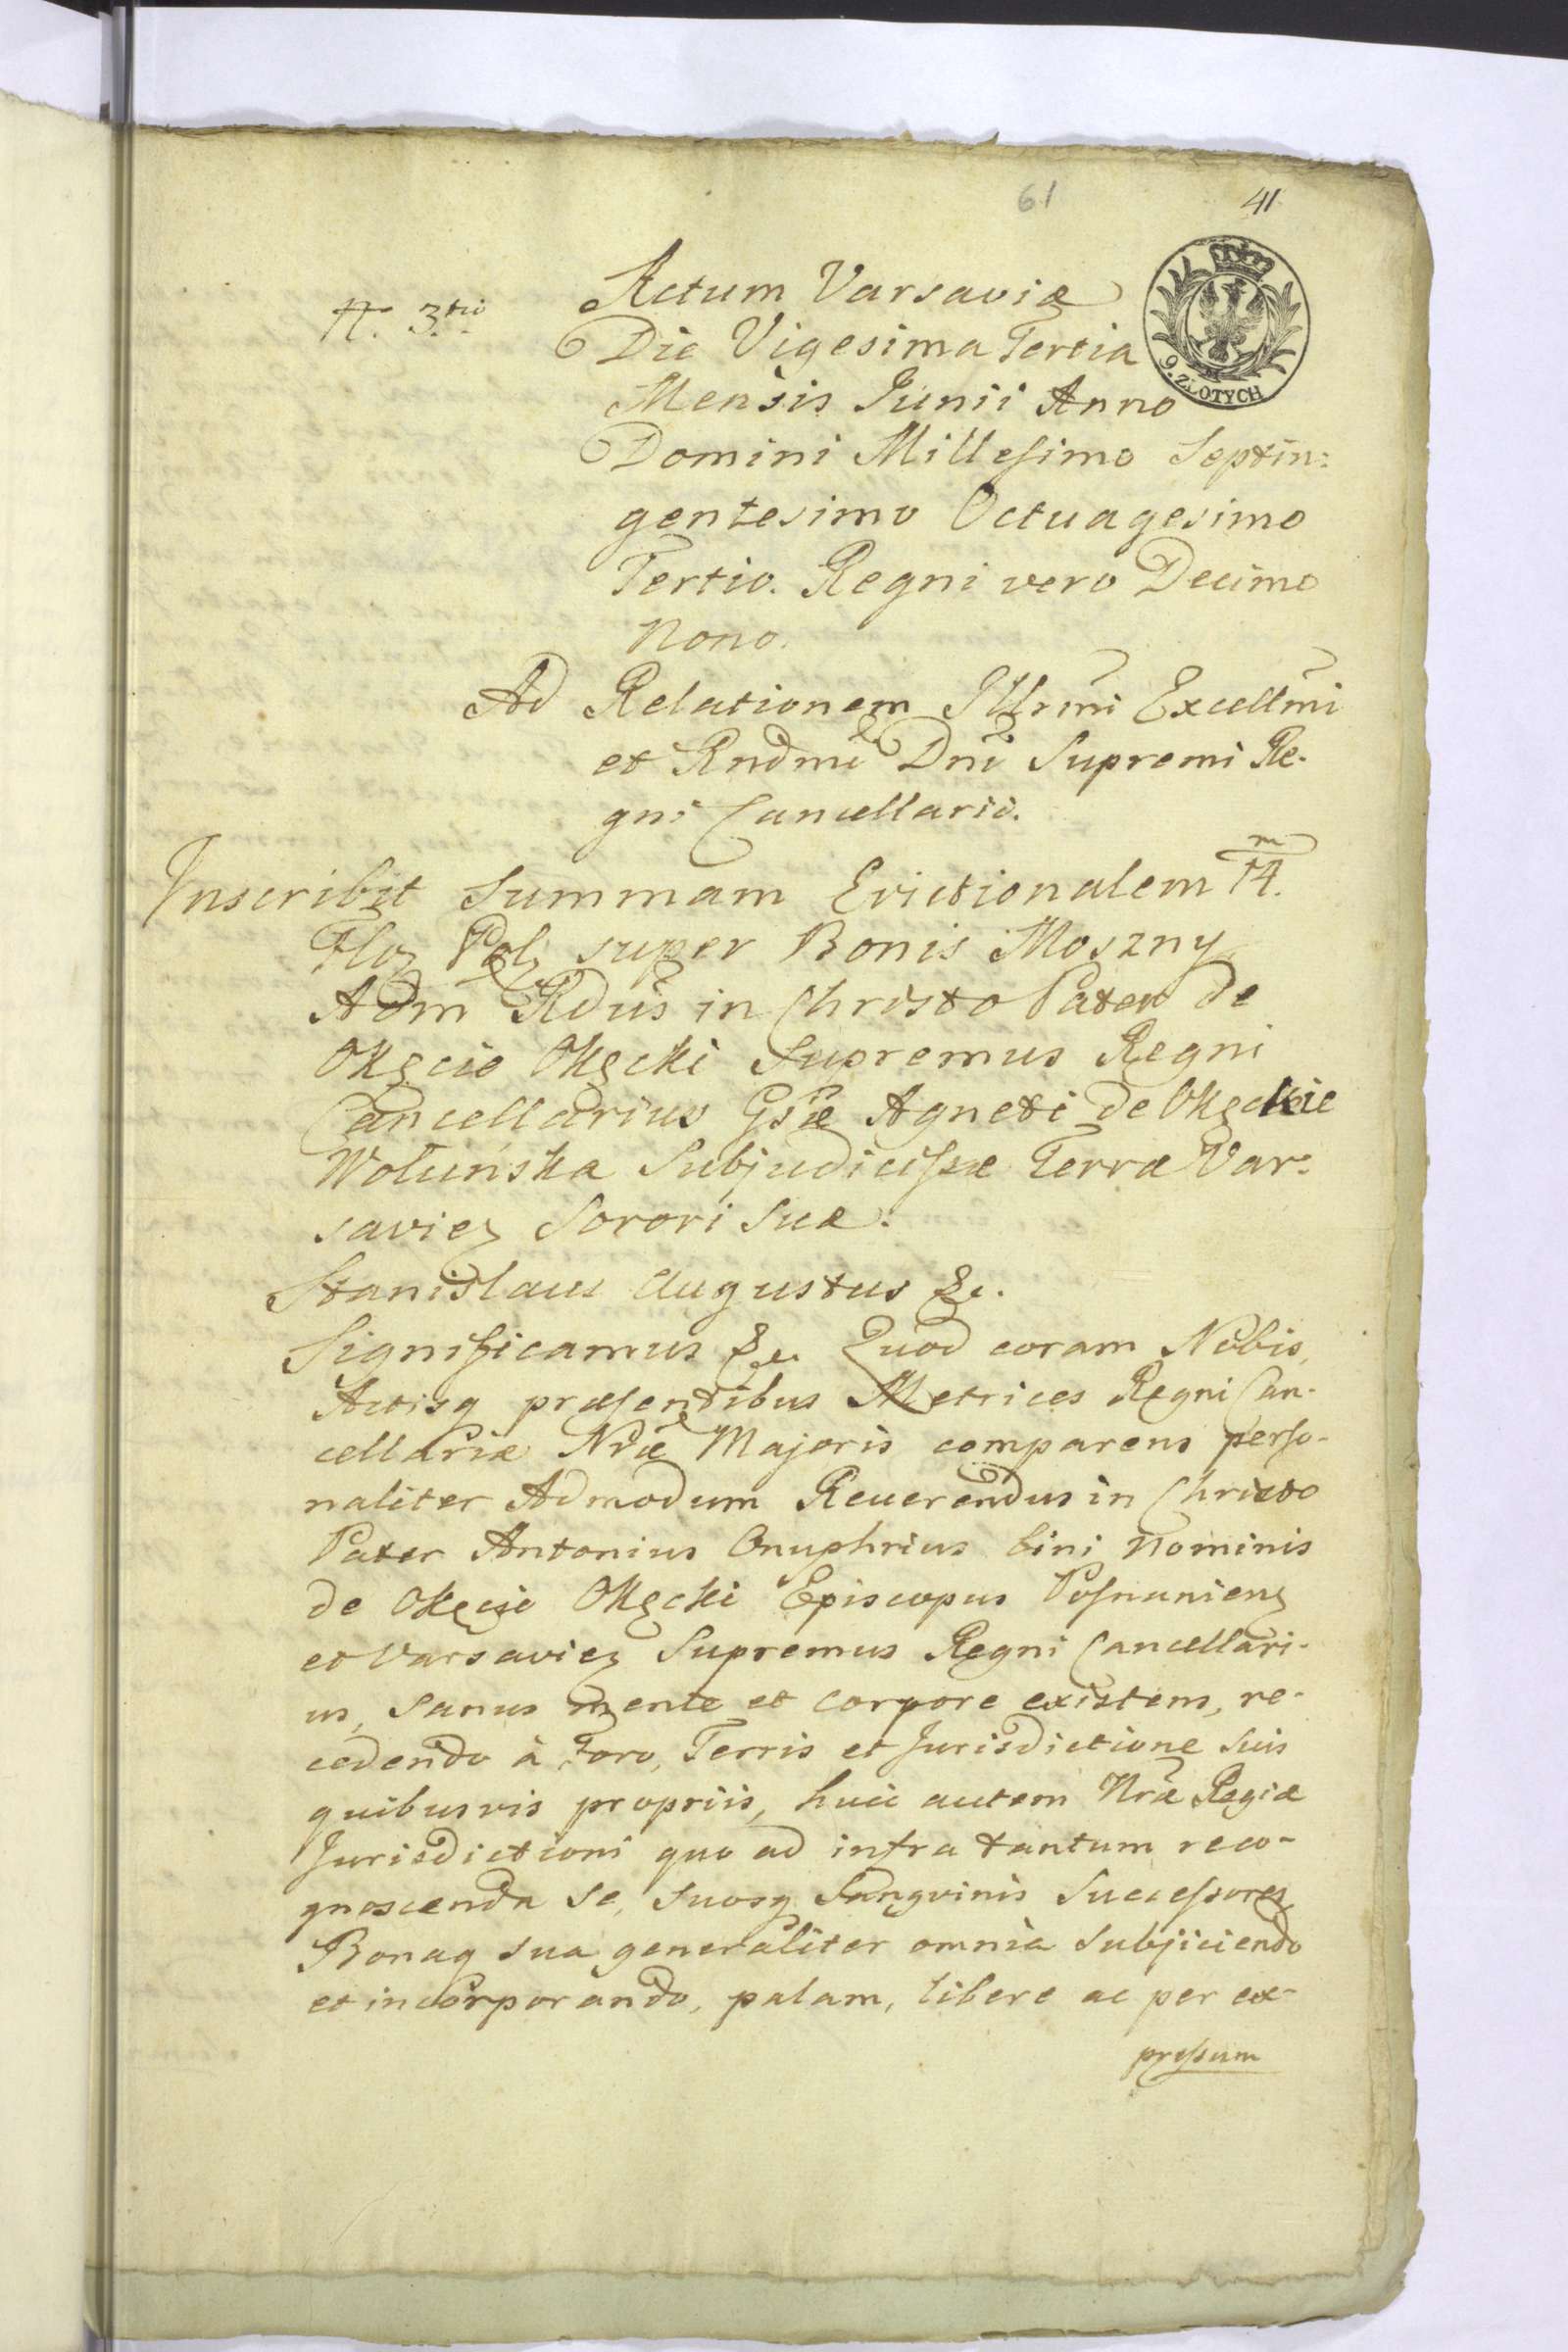 61
41
N. 3tio
Actum Varsaviæ
Die Vigesima Tertia
Mensis Junii Anno
9. ZŁOTYCH
Domini Millesimo Septin:
gentesimo Octuagesimo
Tertio. Regni vero Decimo
Nono.
Ad Relationem Illrmi Excellmi
et Rndmi Dni Supremi Re-
gni Cancellarii.
Inscribit Summam Evictionalem m/14.
Floz Polz super Bonis Moszny
Adm Rdus in Christo Pater de
Okęcie Okęcki Supremus Regni
Cancellarius Gsæ Agneti de Okęckie
Wołuńska Subjudicissæ Terræ Var-
saviez Sorori Suæ.
Stanislaus Augustus &c.
Significamus &c. Quod coram Nobis,
Actisq præsentibus Metrices Regni Can-
cellariæ Nræ Majoris comparens perso-
naliter Admodum Reuerendus in Christo
Pater Antonius Onuphrius bini Nominis
de Okęcie Okęcki Episcopus Posnanienz
et Varsaviez Supremus Regni Cancellari-
us, Sanus mente et corpore existens, re-
cedendo à Foro, Terris et Jurisdictione Suis
quibusvis propriis, huic autem Nræ Regiæ
Jurisdictioni quo ad infra tantum reco-
gnoscenda se, suosq Sangvinis Successores
Bonaq sua generaliter omnia Subjiciendo
et incorporando, palam, libere ac per ex-
pressum